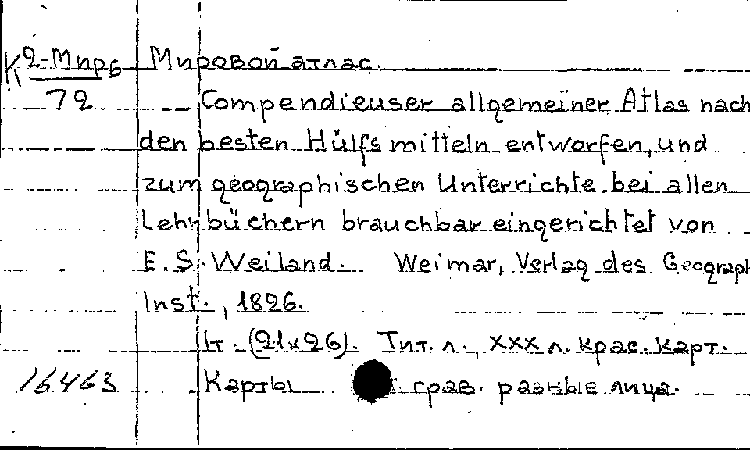 К 2-Мир6 Мировой атлас.
72 Compendieuser allgemeiner Atlas nach
den besten Hülfsmitteln entworfen, und
zum geographischen Unterrichte bei allen
Lehrbüchern brauchbar eingerichtet von
E. S. Weiland. Weimar, Verlag des Geograph
Inst., 1826.
1 т. (21x26). Тит. л., XXX л. крас. карт.
16463 Карты грав. разные лица.